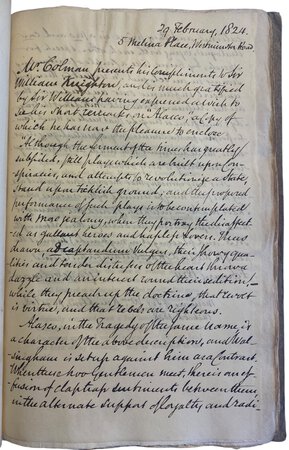 29 February, 1824.
5 Melina Place, Westminster Road.
Mr. Colman presents his compliments to Sir
William Knighton, and is much gratified
by Sir William's having expressed a wish to
see his short remarks on "Alasco," a copy of
which he has now the pleasure to enclose
"Although the ferment of the times has greatly
subsided, still plays which are built upon con-
spiracies, and attempts to revolutionize a State,
stand upon ticklish ground; and the proposed
performance of such plays is to be contemplated
with more jealousy, when they portray the disaffect
ed as gallant heroes and hapless lovers. Thus
drawn ad captandum vulgus, their showy qua-
lities and tender distresses of the heart throw a
dazzle and an interest round their sedition,
while they preach up the doctrine, that revolt
is virtue, and that rebels are righteous.
Alasco, in the Tragedy of the same name, is
a character of the above description, and Wal-
singham is set up against him as a Contrast.
When these two Gentlemen meet, there is an ef-
fusion of claptrap sentiments between them,
in the alternate support of loyalty and radi-